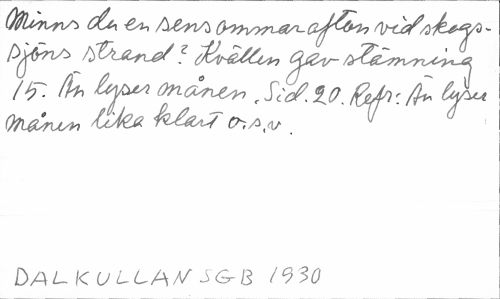 Minns du en sensommarafton vid skogs-
sjöns strand? Kvällen gav stämning
15. Än lyser månen. Sid. 20. Refr: Än lyser
månen lika klart o.s.v.
DALKULLAN SGB 1930